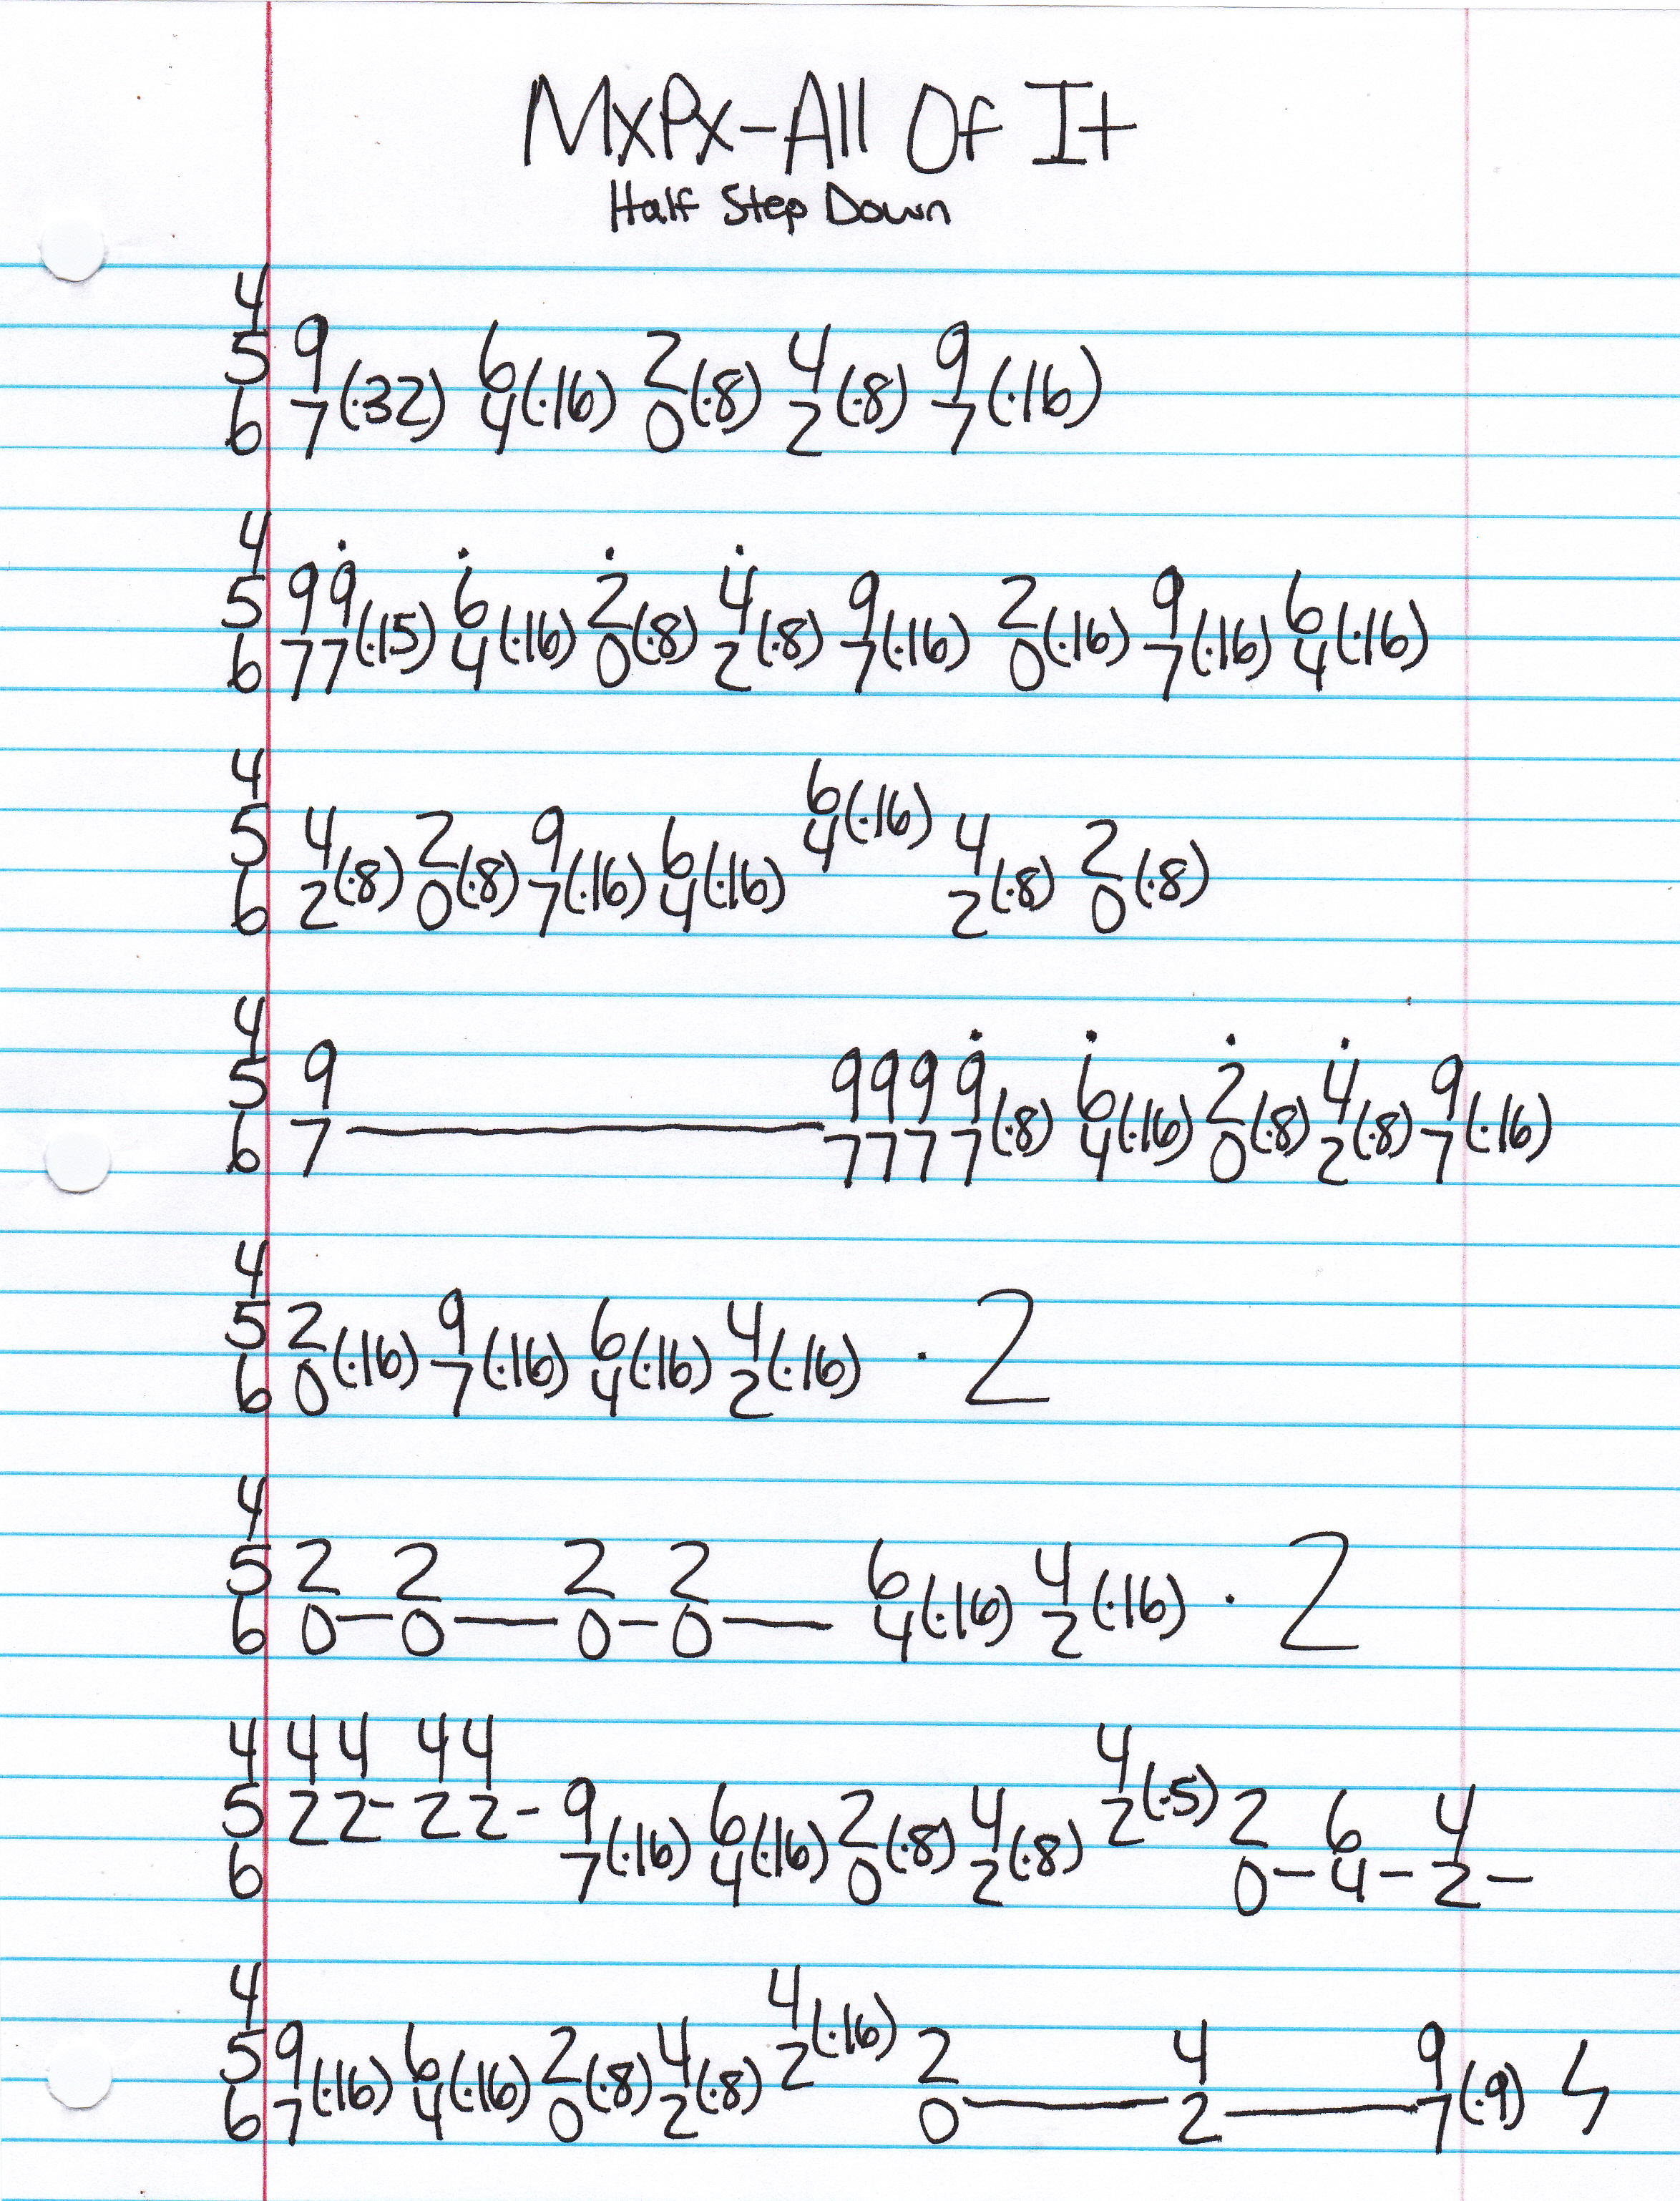 MxPx-All Of It
Half Step Down
4
5 9 6 2 4 9
6 7(·32) 4(·16) 0(·8) 2(·8) 7(·16)
4
5 9 9 6 2 4 9 2 9 6
6 7 7(·15) 4(·16) 0(·8) 2(·8) 7(·16) 0(·16) 7(·16) 4(·16)
4 6(·16)
5 4 2 9 6 4 4 2
6 2(·8) 0(·8) 7(·16) 4(·16) 2(·8) 0(·8)
4
5 9 9 9 9 9 6 2 4 9
6 7 — 7 7 7 7(·8) 4(·16) 0(·8) 2(·8) 7(·16)
4
5 2 9 6 4
6 0(·16) 7(·16) 4(·16) 2(·16) · 2
4
5 2 2 2 2 6 4
6 0-0—0-0— 4(·16) 2(·16) · 2
4 4 4 4 4 4
5 2 2-2 2- 9 6 2 4 2(·5) 2 6 4
6 7(·16) 4(·16) 0(·8) 2(·8) 0-4-2-
4 4
5 9 6 2 4 2(·16) 2 4 9
6 7(·16) 4(·16) 0(·8) 2(·8) 0—2—7(·9)